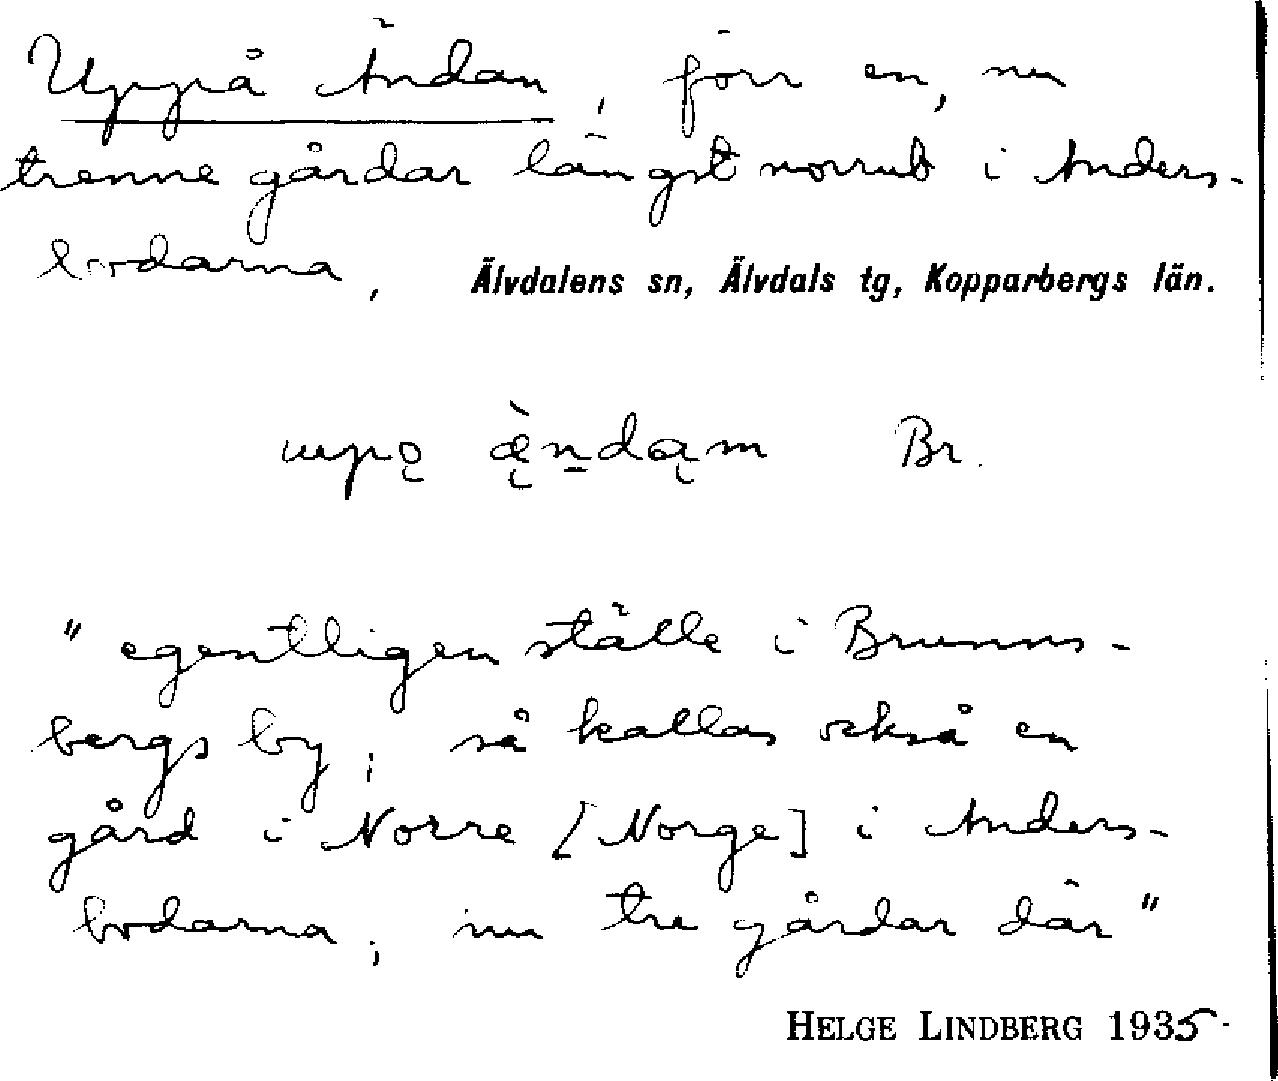 Uppå Ändan, förr en, nu
trenne gårdar längst norrut i Anders-
bodarna, Älvdalens sn, Älvdals tg, Kopparbergs län.
Br.
"egentligen ställe i Brunns-
bergs by; så kallas också en
gård i Norre [Norge] i Anders-
bodarna; nu tre gårdar där"
HELGE LINDBERG 1935